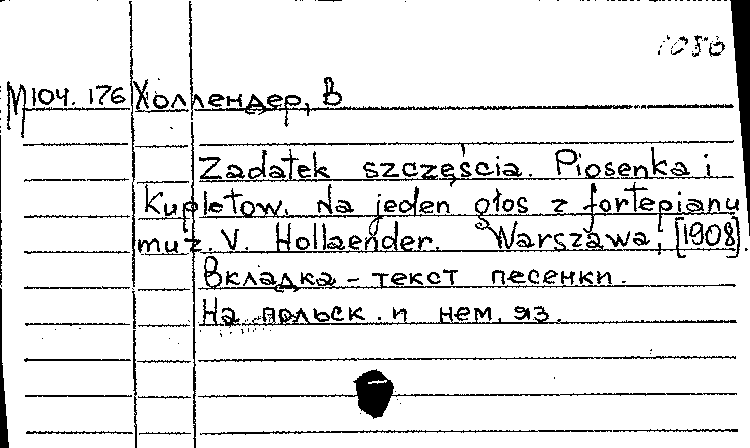 1086
М104.176 Холлендер, В
Zadatek szczęścia. Piosenka i
Kupletow. Na jeden głos z fortepianu
muz. V. Hollaender. Warszawa, [1908].
Вкладка - текст песенки.
На польск. и нем. яз.